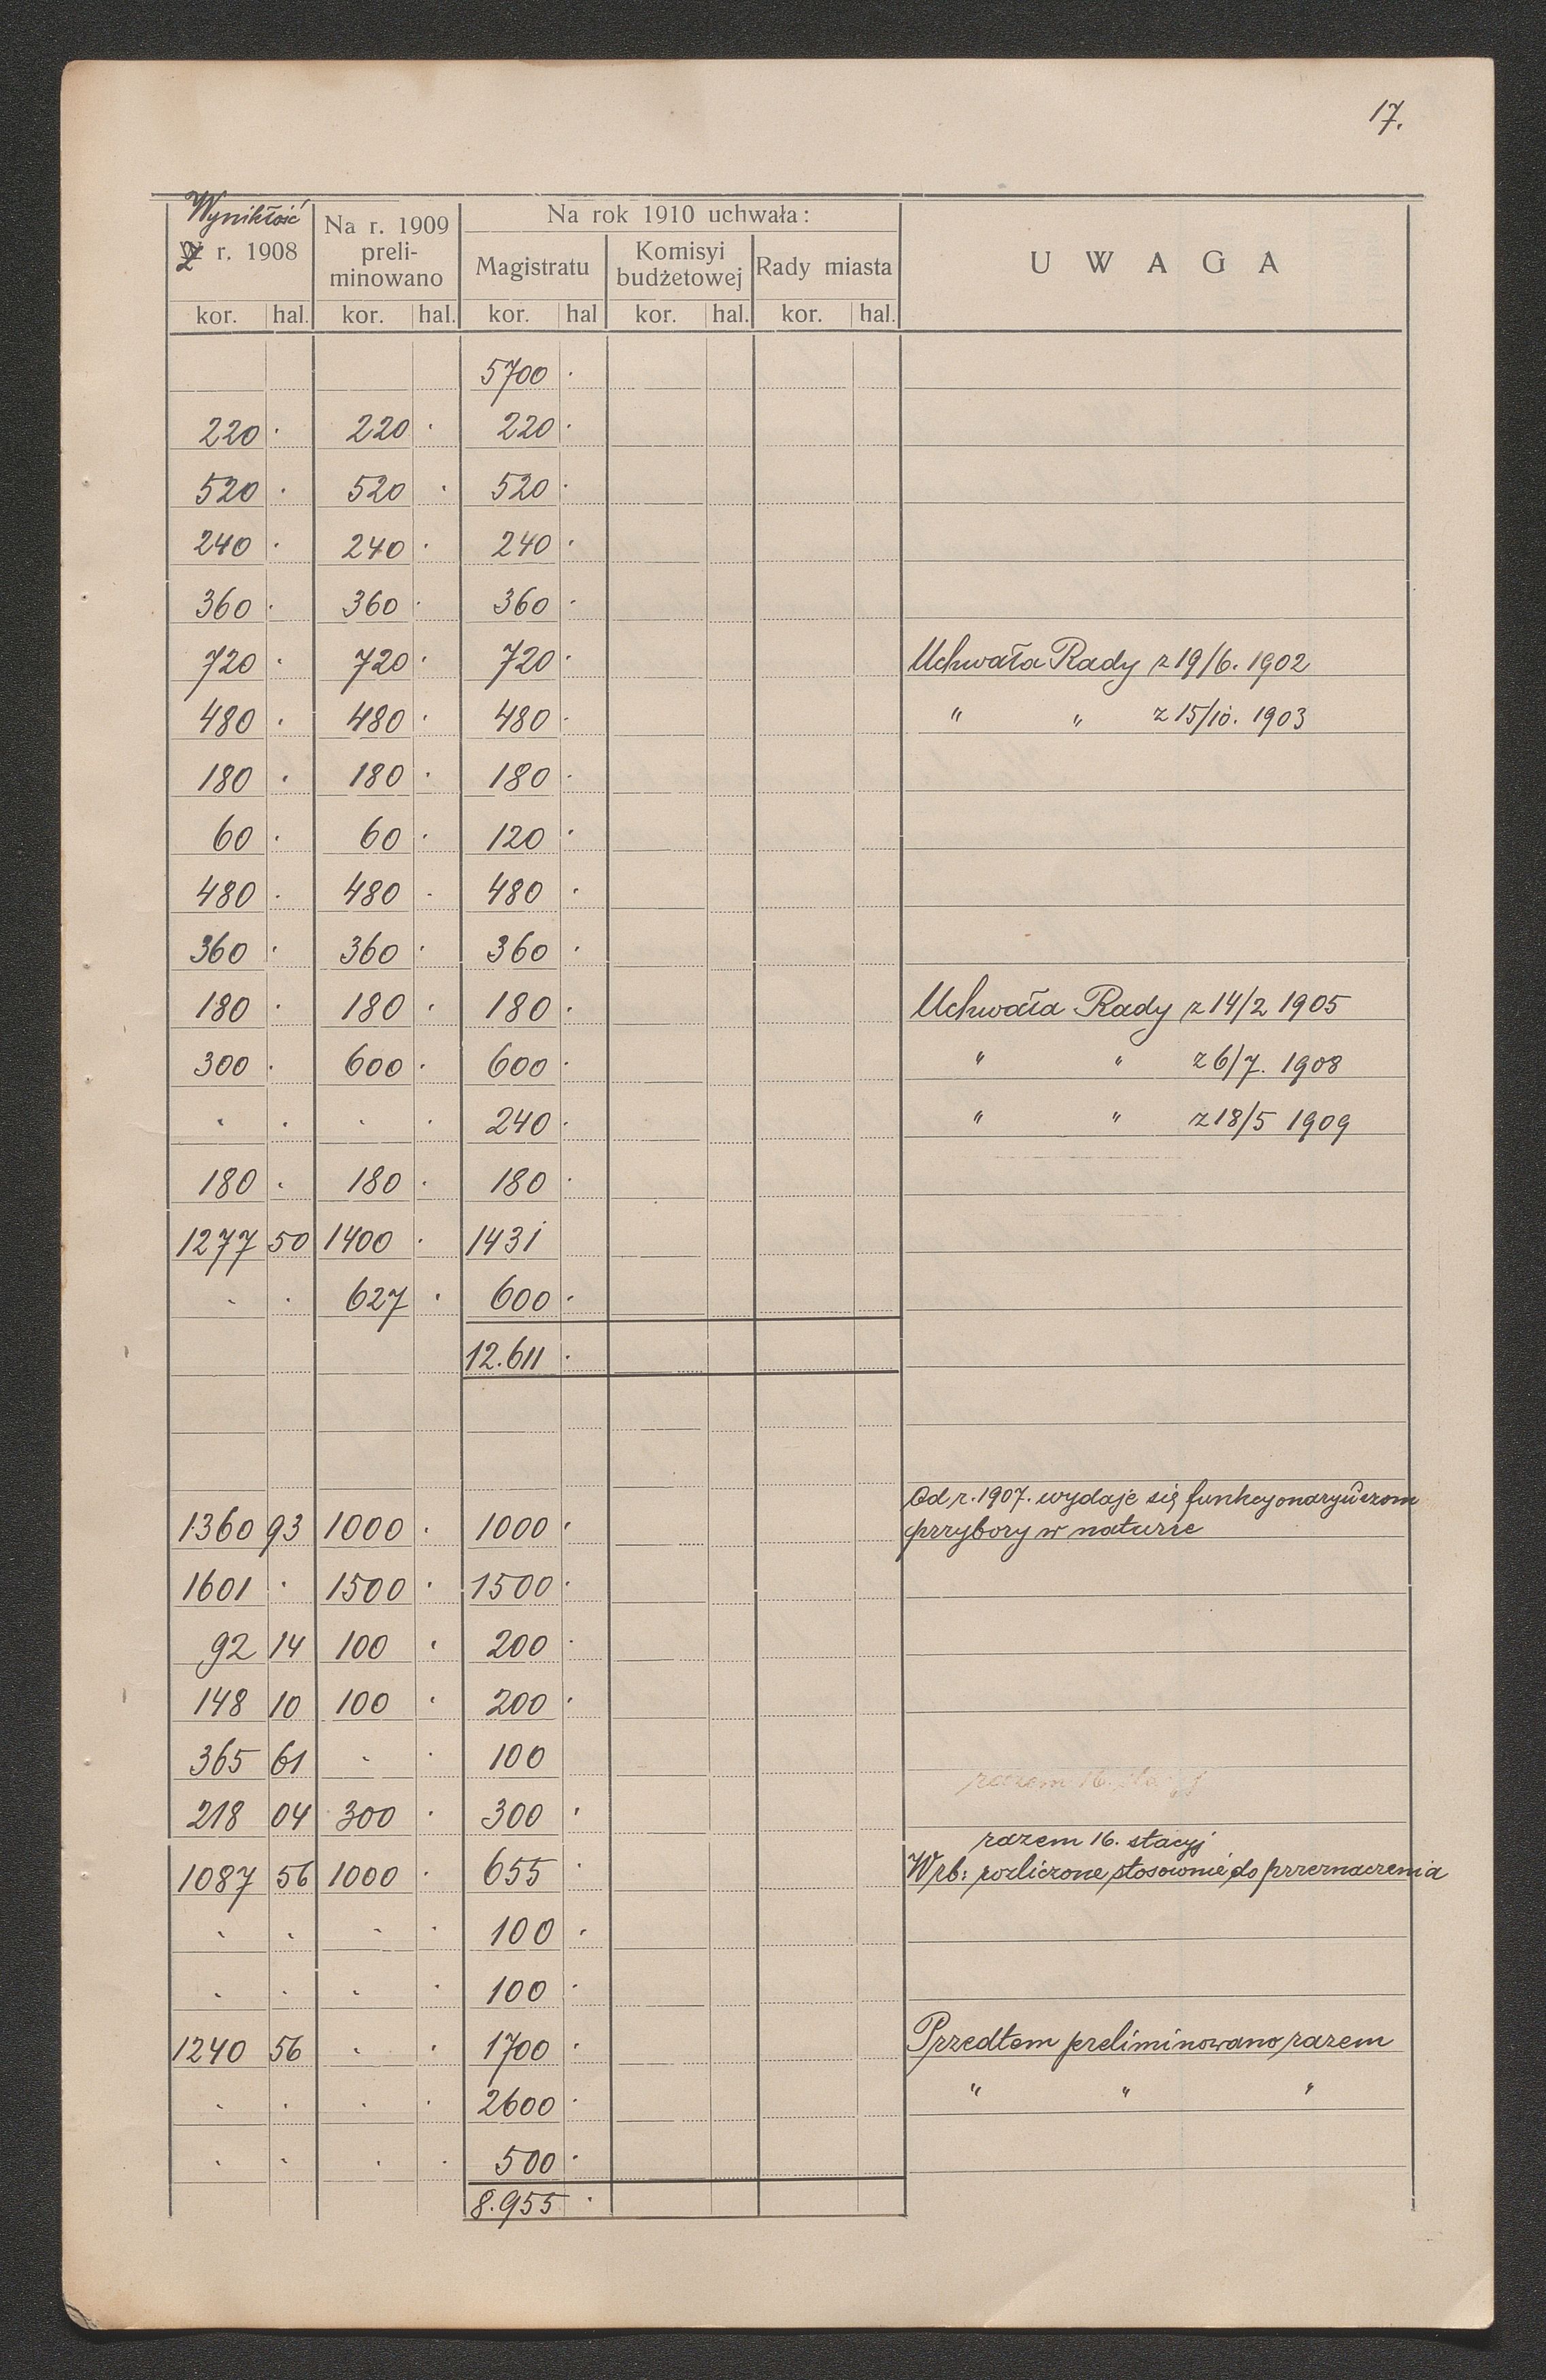 17.
Wynikłość Na r. 1909 preli- minowano Na rok 1910 uchwała: UWAGA
Z r. 1908 Magistratu Komisyi budżetowej Rady miasta
kor. hal. kor. hal. kor. hal kor. hal. kor. hal.
5700 ·
220 · 220 · 220 ·
520 · 520 · 520 ·
240 · 240 · 240 ·
360 · 360 · 360 ·
720 · 720 · 720 · Uchwała Rady z 19/6. 1902
480 · 480 · 480 · " " z 15/10. 1903
180 · 180 · 180 ·
60 · 60 · 120 ·
480 · 480 · 480 ·
360 · 360 · 360 ·
180 · 180 · 180 · Uchwała Rady z 14/2 1905
300 · 600 · 600 · " " z 6/7. 1908
· · · · 240 · " " z 18/5 1909
180 · 180 · 180 ·
1277 50 1400 · 1431
· · 627 · 600 ·
12.611 ·
Od r. 1907. wydaje się funkcyonaryuszom
1360 93 1000 · 1000 · przybory w naturze
1601 · 1500 · 1500 ·
92 14 100 · 200 ·
148 10 100 · 200 ·
365 61 · · 100
razem 16. stacyj
218 04 300 · 300 ·
razem 16. stacyj
1087 56 1000 · 655 · W rb: rozliczone stosownie do przeznaczenia
· · · · 100 ·
· · · · 100 ·
1240 56 · · 1700 · Przedtem preliminowano razem
· · · · 2600 · " " "
· · · · 500 ·
8.955 ·